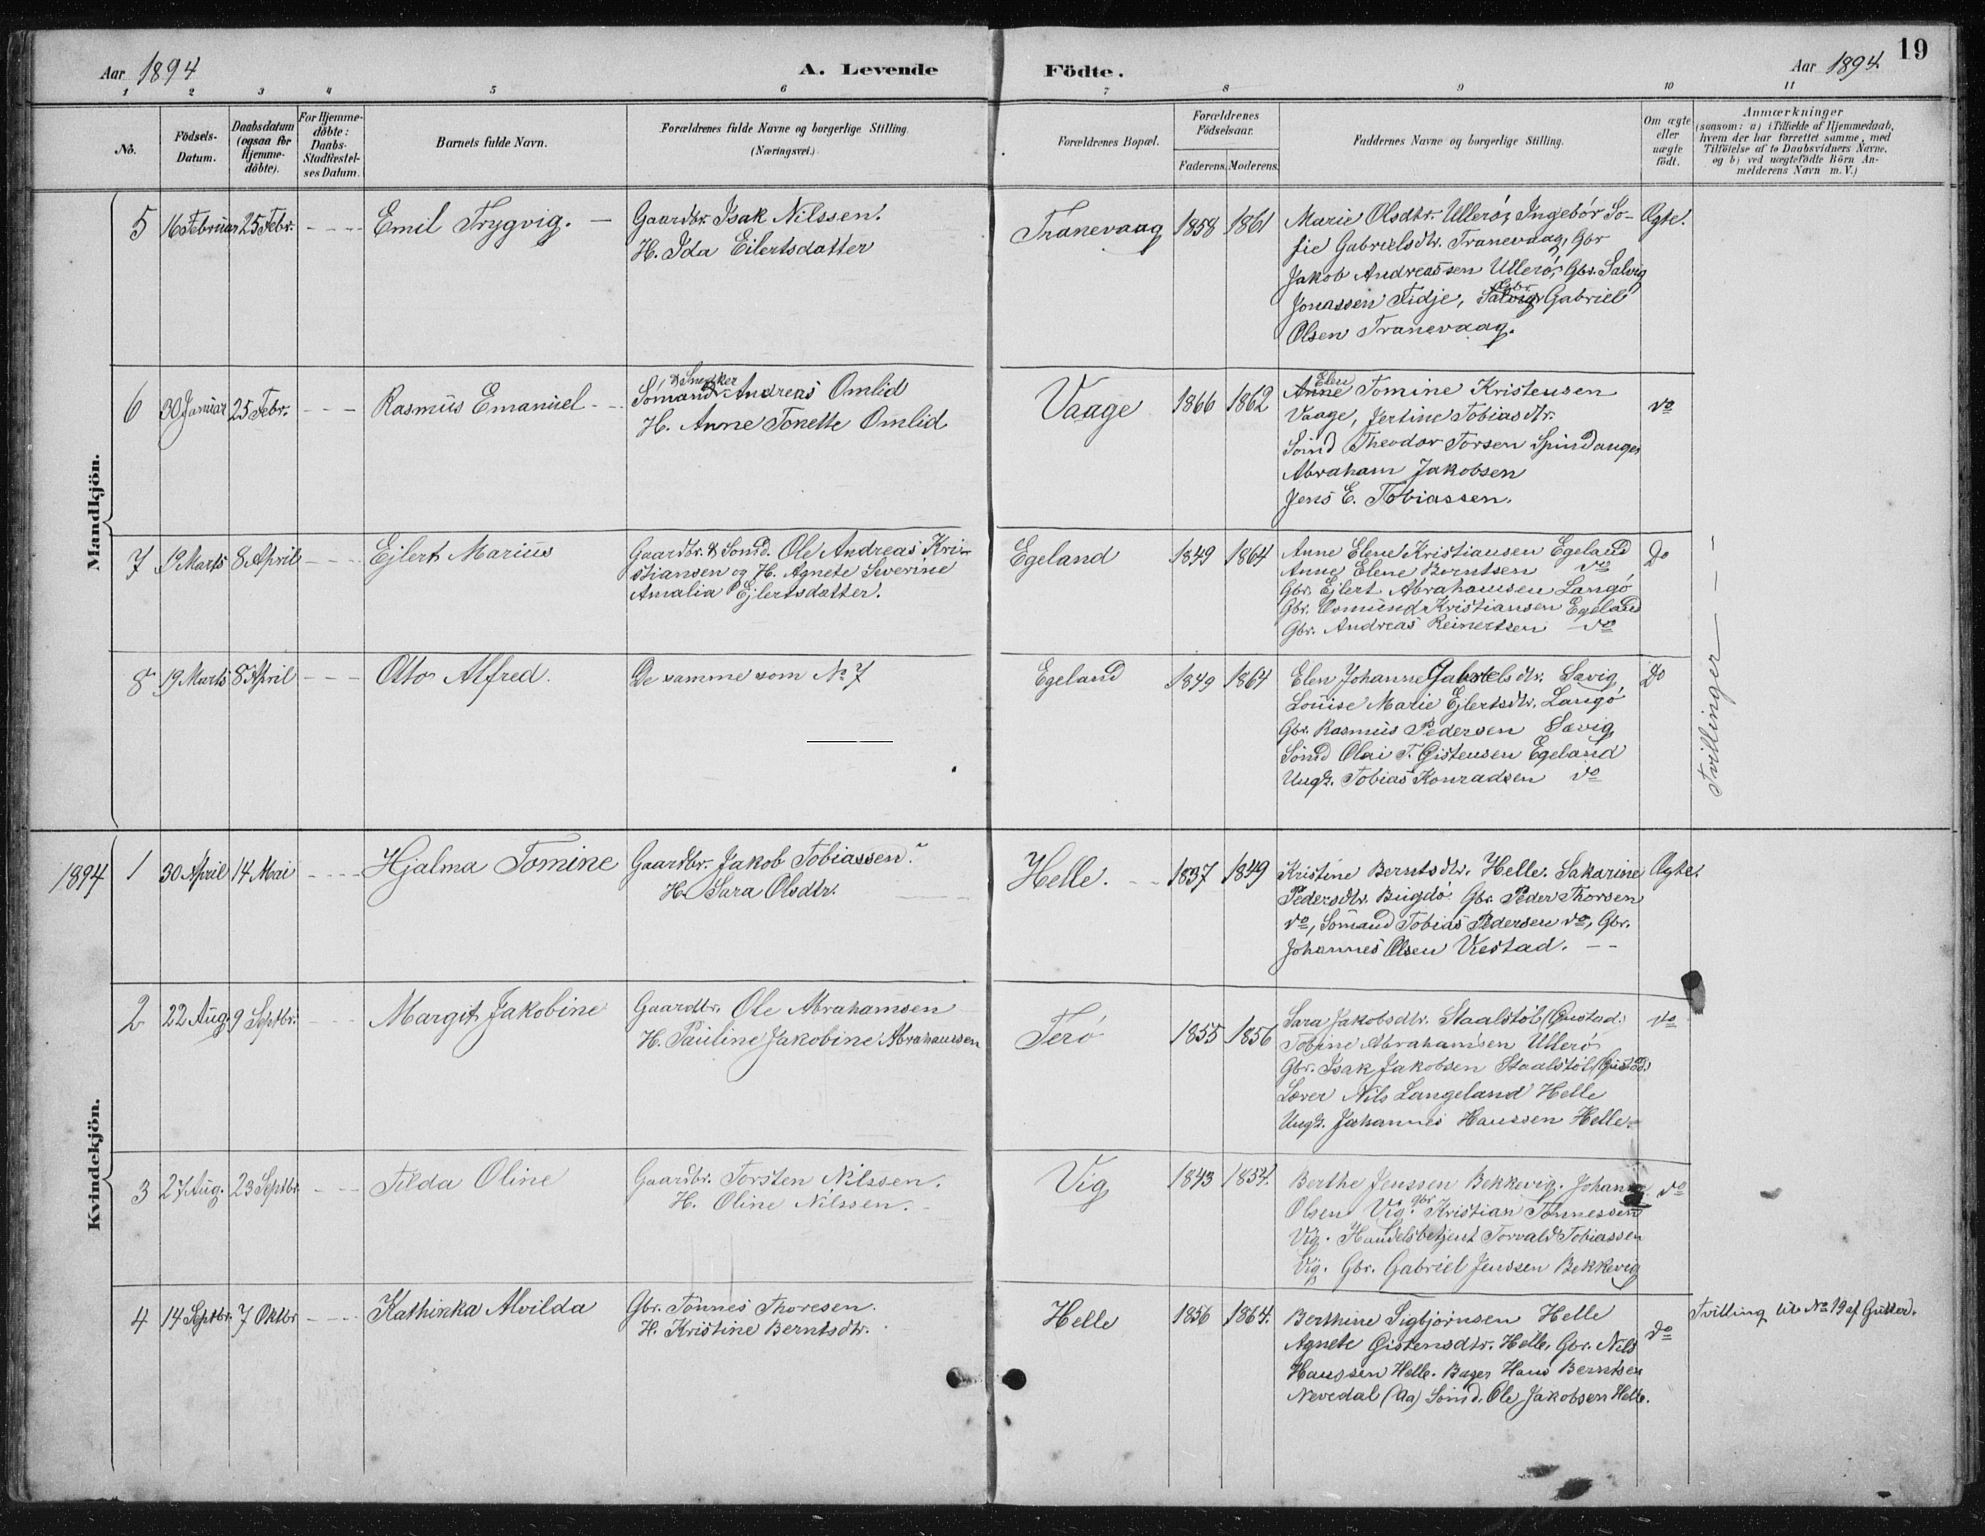 19
Aar 1894
A. Levende
Födte.
Aar 1894.
1 2 3 4 5 6 7 8 9 10 11
No.
Födsels-Datum.
Daabsdatum (ogsaa for Hjemme-döbte).
For Hjemme-döbte: Daabs-Stadfæstel-ses Datum.
Barnets fulde Navn.
Forældrenes fulde Navne og borgerlige Stilling. (Næringsvei.)
Forældrenes Bopæl.
Forældrenes Födselsaar.
Faderens. Moderens.
Faddernes Navne og borgerlige Stilling.
Om ægte eller uægte födt.
Anmærkninger
(saasom: a) i Tilfælde af Hjemmedaab,
hvem der har forrettet samme, med
Tilföielse af to Daabsvidners Navne,
og b) ved uægtefödte Börn An-
melderens Navn m. V.)
Mandkjön.
5 16 Februar 25 Febr. - - - Emil Trygvig. —
Gaardbr. Isak Nilssen.
H. Ida Eilertsdatter
Tranevaag 1858 1861
Marie Olsdtr. Ullerö, Ingebór So-
fie Gabrielsdtr. Tranevaag, Gbr
Jakob Andreassen Ullerö, Gbr. Salvig
Jonassen Fidje, Gbr. Gabriel
Olsen Tranevaag.
Ægte.
6 30 Januar 25 Febr. - - - Rasmus Emanuel - -
& Snedker
Sömand Andreas Omlid
H. Anne Tonette Omlid
Vaage 1866 1862
Elen
Anne Tomine Kristensen
Vaage, Jertine Tobiasdtr.
Sömd Theodor Torsen Spindanger
Abraham Jakobsen
Jens E. Tobiassen.
do
7 19 Marts 8 April - - - Ejlert Marius
Gaardbr. & Sömd. Ole Andreas Kri-
stiansen og H. Agnete Severine
Amalia Ejlertsdatter.
Egeland 1849 1864
Anne Elene Kristiansen Egeland
Anne Elene Berntsen do
Gbr. Ejlert Abrahamsen Langö
Gbr. Osmund Kristiansen Egeland
Gbr. Andreas Reinertsen do
Do
8 19 Marts 8 April - - - Otto Alfred.
De samme som No 7
Egeland 1849 1864
Elen Johanne Gabrielsdtr. Sævig
Louise Marie Ejlertsdtr. Langö
Gbr. Rasmus Pedersen Sævig
Sömd Olai T. Gistensen Egeland
Ungk. Tobias Konradsen do
Do
Tvillinger — — —
Kvindekjön.
1894 1 30 April 14 Mai - - - Hjalma Tomine
Gaardbr. Jakob Tobiassen.
H. Sara Olsdtr.
Helle. - - 1837 1849
Kristine Berntsdtr. Helle. Sakarine
Pedersdtr. Bugdö Gbr. Peder Thorsen
do, Sömand Tobias Pedersen do, Gbr.
Johannes Olsen Viestad. - -
Ægte.
2 22 Aug. 9 Septbr. - - - Margit Jakobine
Gaardbr. Ole Abrahamsen
H. Pauline Jakobine Abrahamsen
Terö 1855 1856
Sara Jakobsdtr. Staalstöl (Gustad.)
Tobine Abrahamsen Ullerö
Gbr. Isak Jakobsen Staalstöl (Gustd.)
Lærer Nils Langeland Helle
Ungk. Johannes Hanssen Helle.
do
3 27 Aug. 23 Septbr - - - Tilda Oline
Gaardbr. Torsten Nilssen.
H. Oline Nilssen. -
Vig 1843 1854.
Berthe Jenssen Bekkevig. Johanne
Olsen Vig. gbr. Kristian Tönnessen
Vig. Handelsbetjent Torvald Tobiassen
Vig. Gbr. Gabriel Jenssen Bekkevig
do
4 14 Septbr. 7 Oktbr - - - Kathinka Alvilda
Gbr. Tönnes Thoresen.
H. Kristine Berntsdtr.
Helle 1856 1864.
Berthine Sigbjörnsen Helle
Agnete Gistensdtr. Helle, Gbr. Nils
Hanssen Helle. Bager Hans Berntsen
Nevedal (Aa) Sömd. Ole Jakobsen Helle.
do
Tvilling til No 19 af Gutter.